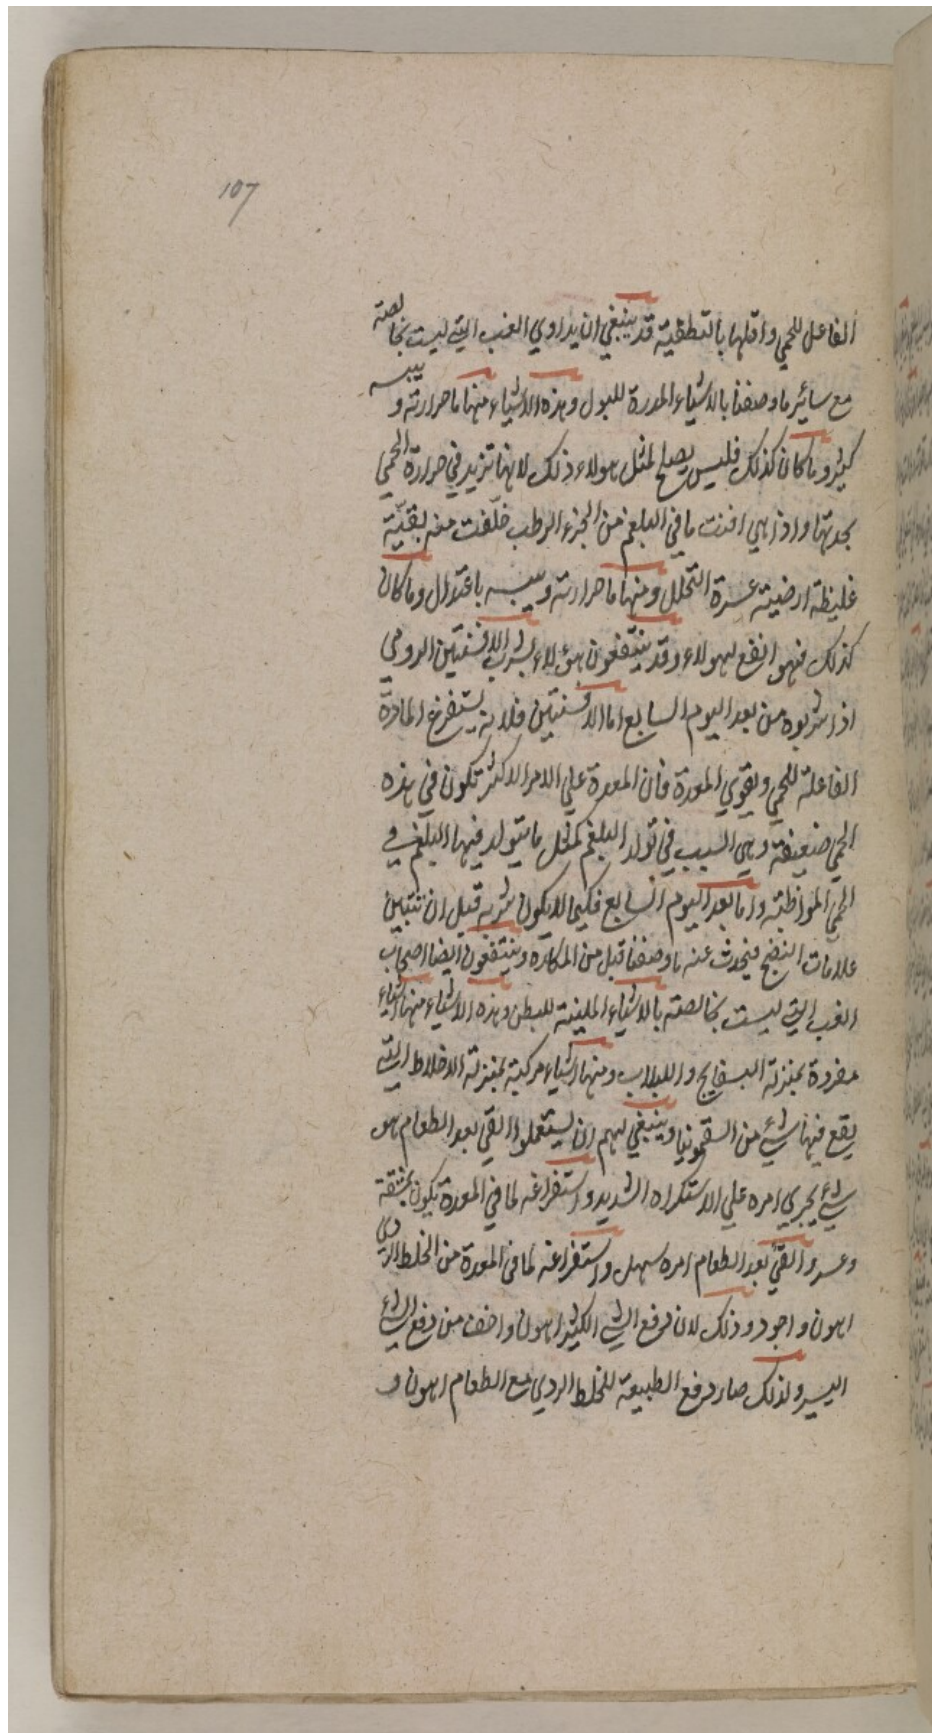 107
الفاعل للحمي واقلها بالتطفية قد ينبغي ان يداوي الغب التي ليست بخالصة
مع سائر ما وصفنا بالاشياء المدرة للبول وهذه الاشياء منها ما حرارته و يبسه
كثير وما كان كذلك فليس يصلح لمثل هولاء ذلك لانها تزيد في حرارة الحمي
بحدتها واذا هي افنت ما في البلغم من الجزء الرطب خلّفت منه بقيّة
غليظة ارضية عسرة التحلل ومنها ما حرارته ويبسه باعتدال وما كان
كذلك فهو انفع لهولاء وقد ينتفعون هؤلاء بشرب الافسنتين الرومي
اذا شربوه من بعد اليوم السابع اما الافسنتين فلانه يستفرغ المادة
الفاعلة للحمي ويقوي المعدة فان المعدة علي الامر الاكثر تكون في هذه
الحمي ضعيفة وهي السبب في تولد البلغم كمثل ما يتولد فيها البلغم في
الحمي المواظبة واما بعد اليوم السابع فكيما لا يكون شربه قبل ان تتبين
علامات النضج فيحدث عنه ما وصفنا قبل من المكاره وينتفعون ايضا اصحاب
الغب التي ليست بخالصة بالاشياء الملينة للبطن وهذه الاشياء منها اشياء
مفردة بمنزلة البسفايج واللبلاب ومنها اشياء مركبة بمنزلة الاخلاط التي
يقع فيها شيء من السقمونيا وينبغي لهم ان يستعملوا القي بعد الطعام هو
شيء يجري امره علي الاستكراه الشديد واستفراغه لما في المعدة يكون بمشقة
وعسر والقيء بعد الطعام امره سهل واستفراغه لما في المعدة من الخلط الردي
اهون واجود وذلك لان دفع الشيء الكثير اهون واخف من دفع الشيء
اليسير ولذلك صار دفع الطبيعة للخلط الردي مع الطعام اهون و